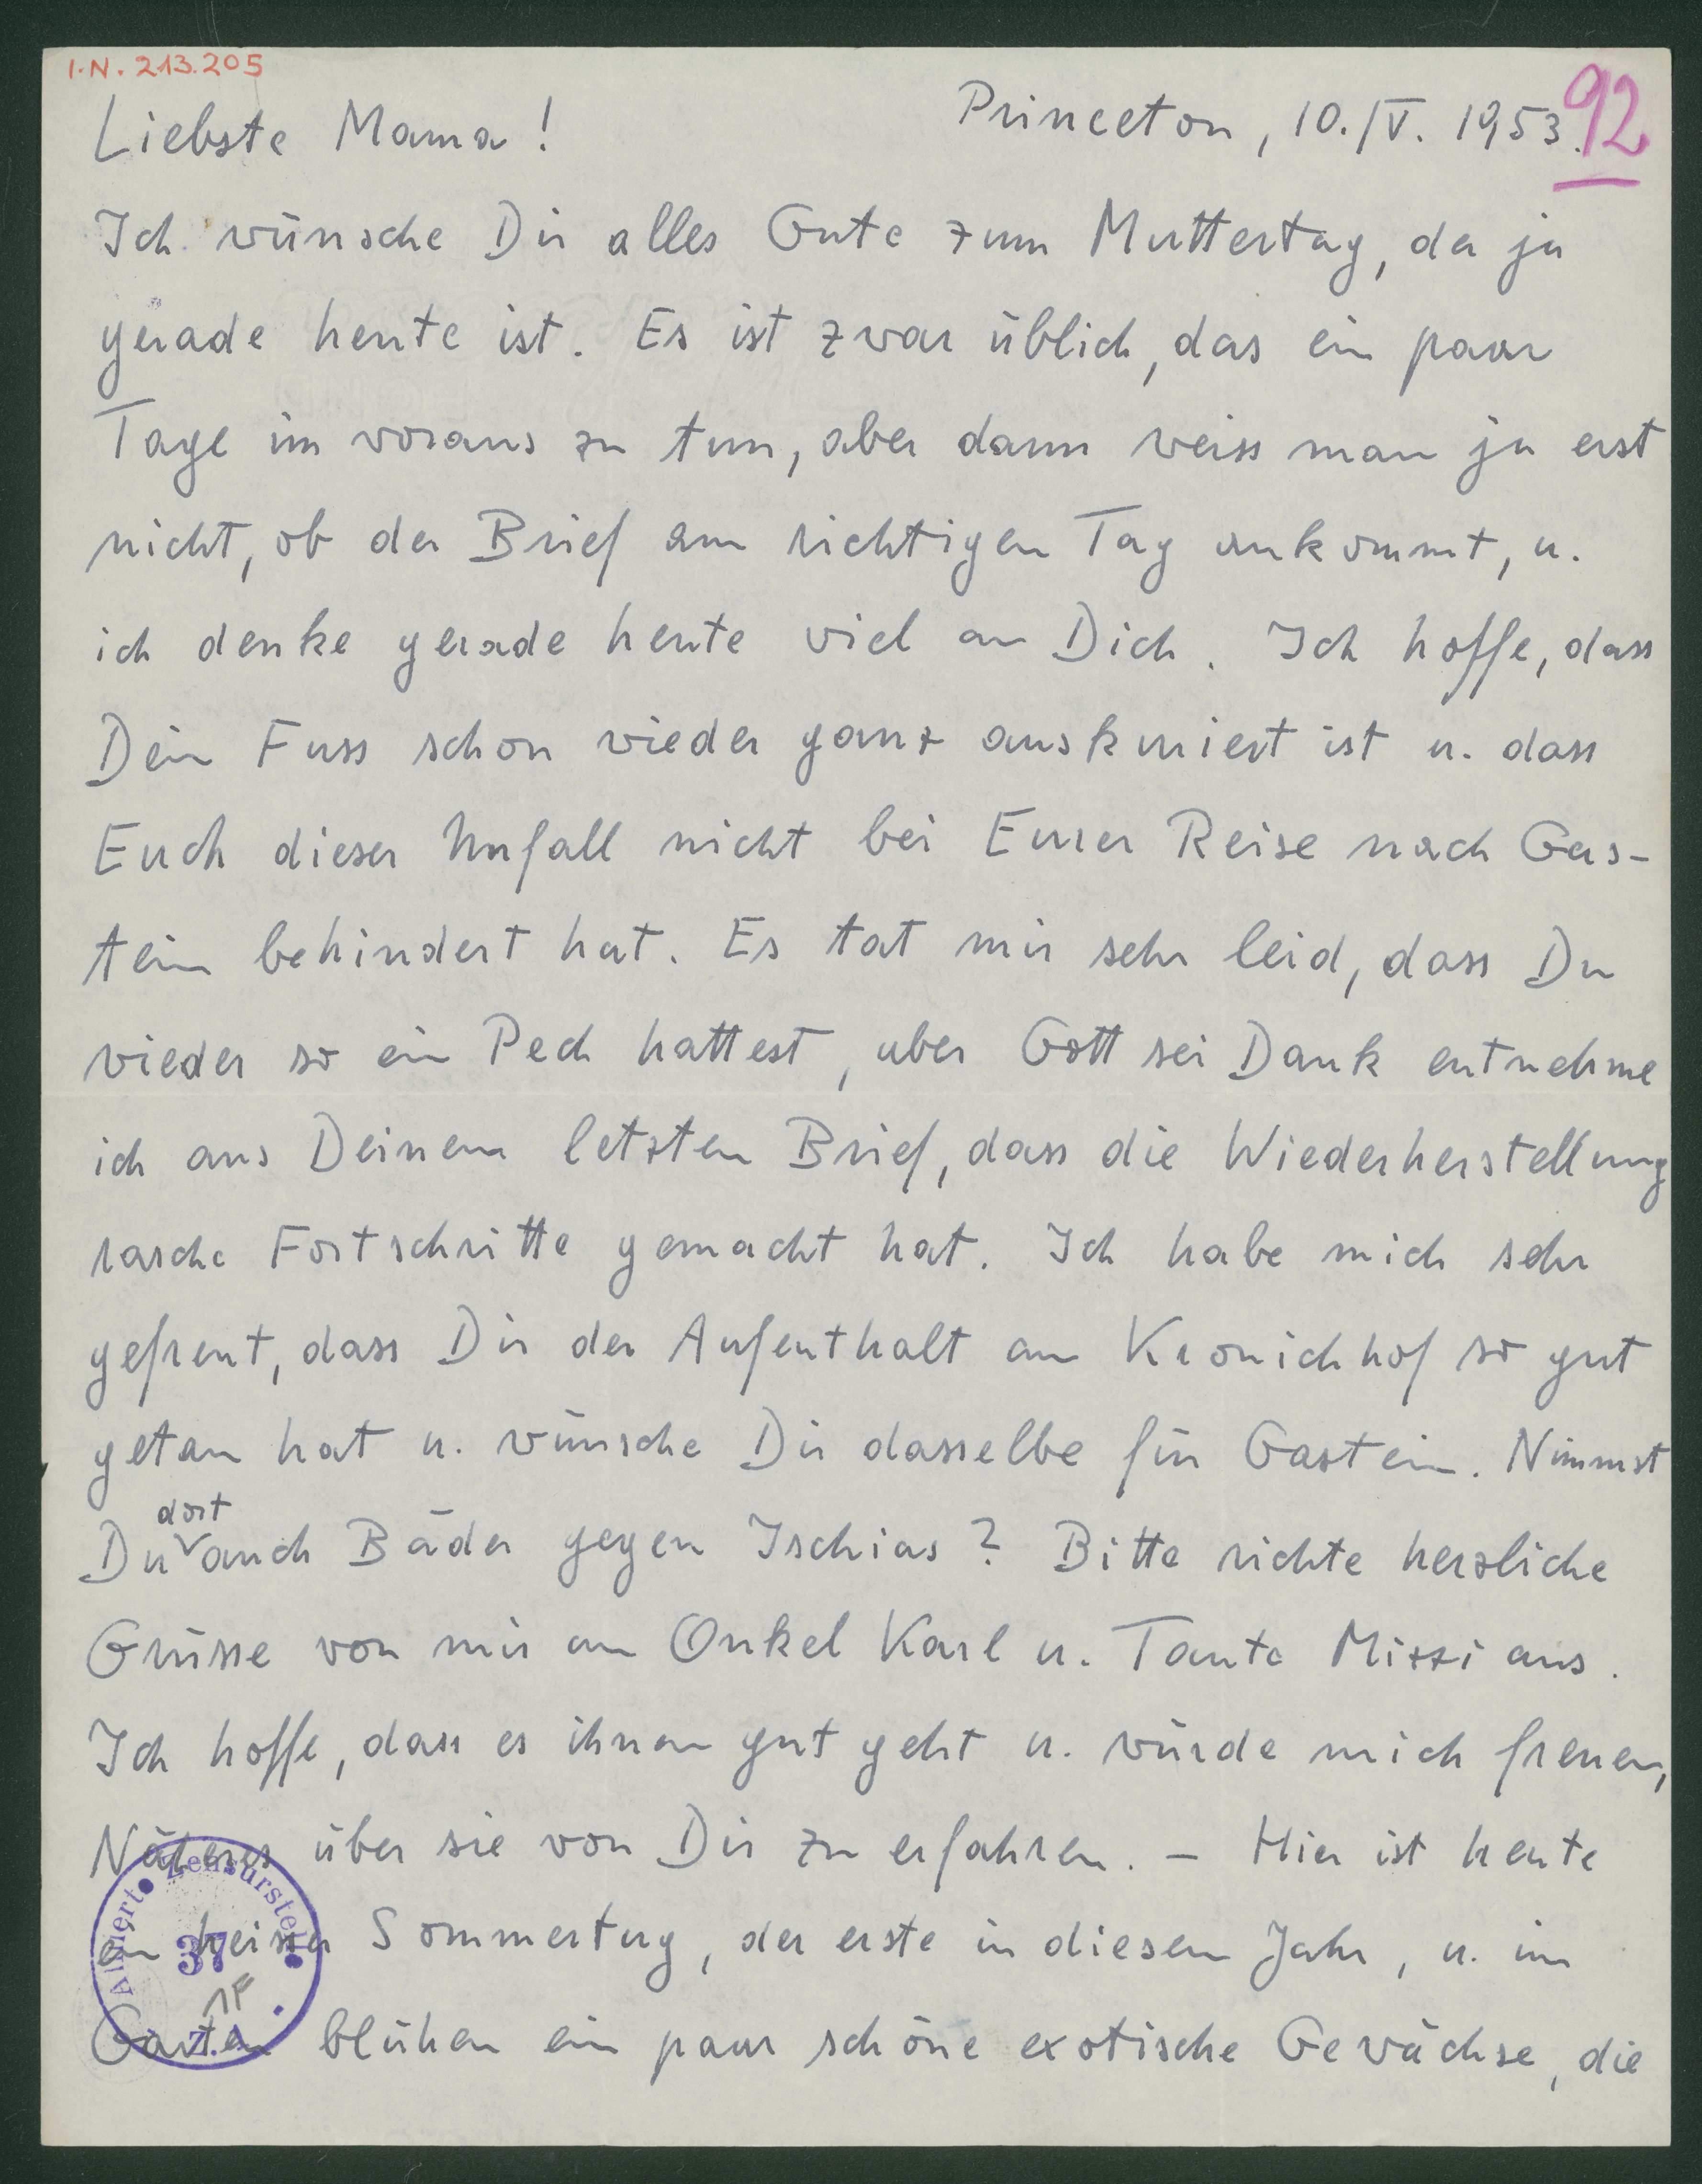 I.N. 213.205
Liebste Mama! Princeton, 10./V. 1953. 92
Ich wünsche Dir alles Gute zum Muttertag, der ja
gerade heute ist. Es ist zwar üblich, das ein paar
Tage im voraus zu tun, aber dann weiss man ja erst
nicht, ob der Brief am richtigen Tag ankommt, u.
ich denke gerade heute viel an Dich. Ich hoffe, dass
Dein Fuss schon wieder ganz auskuriert ist u. dass
Euch dieser Unfall nicht bei Eurer Reise nach Gas-
tein behindert hat. Es tat mir sehr leid, dass Du
wieder so ein Pech hattest, aber Gott sei Dank entnehme
ich aus Deinem letzten Brief, dass die Wiederherstellung
rasche Fortschritte gemacht hat. Ich habe mich sehr
gefreut, dass Dir der Aufenthalt am Kronichhof so gut
getan hat u. wünsche Dir dasselbe für Gastein. Nimmst
Du dort auch Bäder gegen Ischias? Bitte richte herzliche
Grüsse von mir an Onkel Karl u. Tante Mizzi aus.
Ich hoffe, dass es ihnen gut geht u. würde mich freuen,
Näheres über sie von Dir zu erfahren. – Hier ist heute
ein heisser Sommertag, der erste in diesem Jahr, u. im
Garten blühen ein paar schöne exotische Gewächse, die
Alliierte Zensurstelle
37